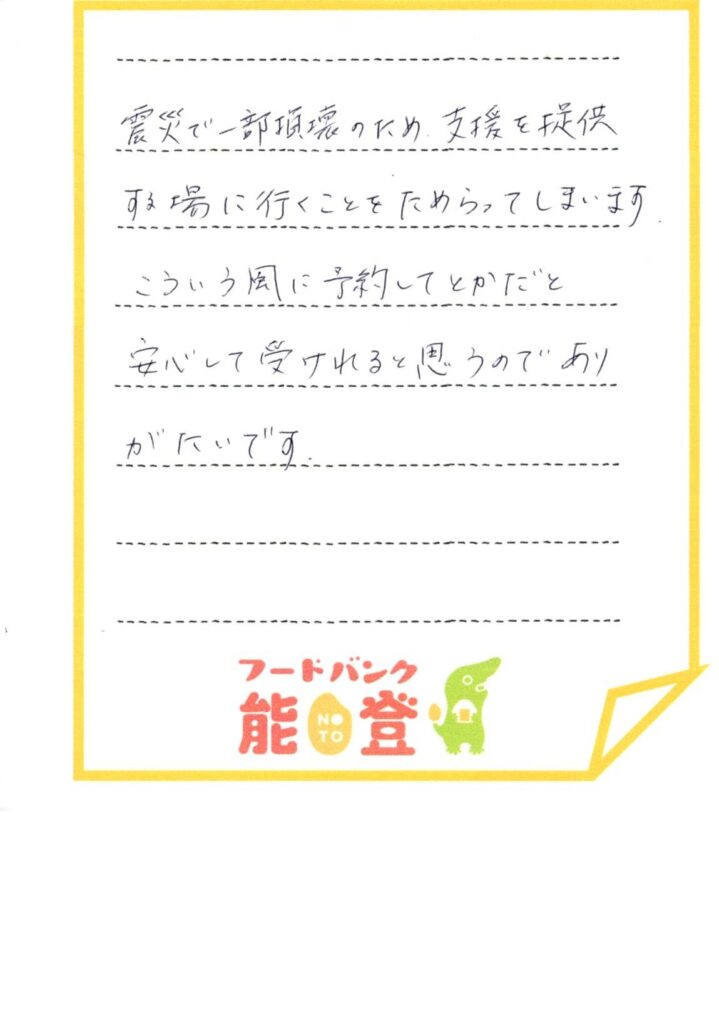 震災で一部損壊のため、支援を提供
する場に行くことをためらってしまいます。
こういう風に予約してとかだと
安心して受けれると思うのであり
がたいです。
フードバンク
能登
NO
TO